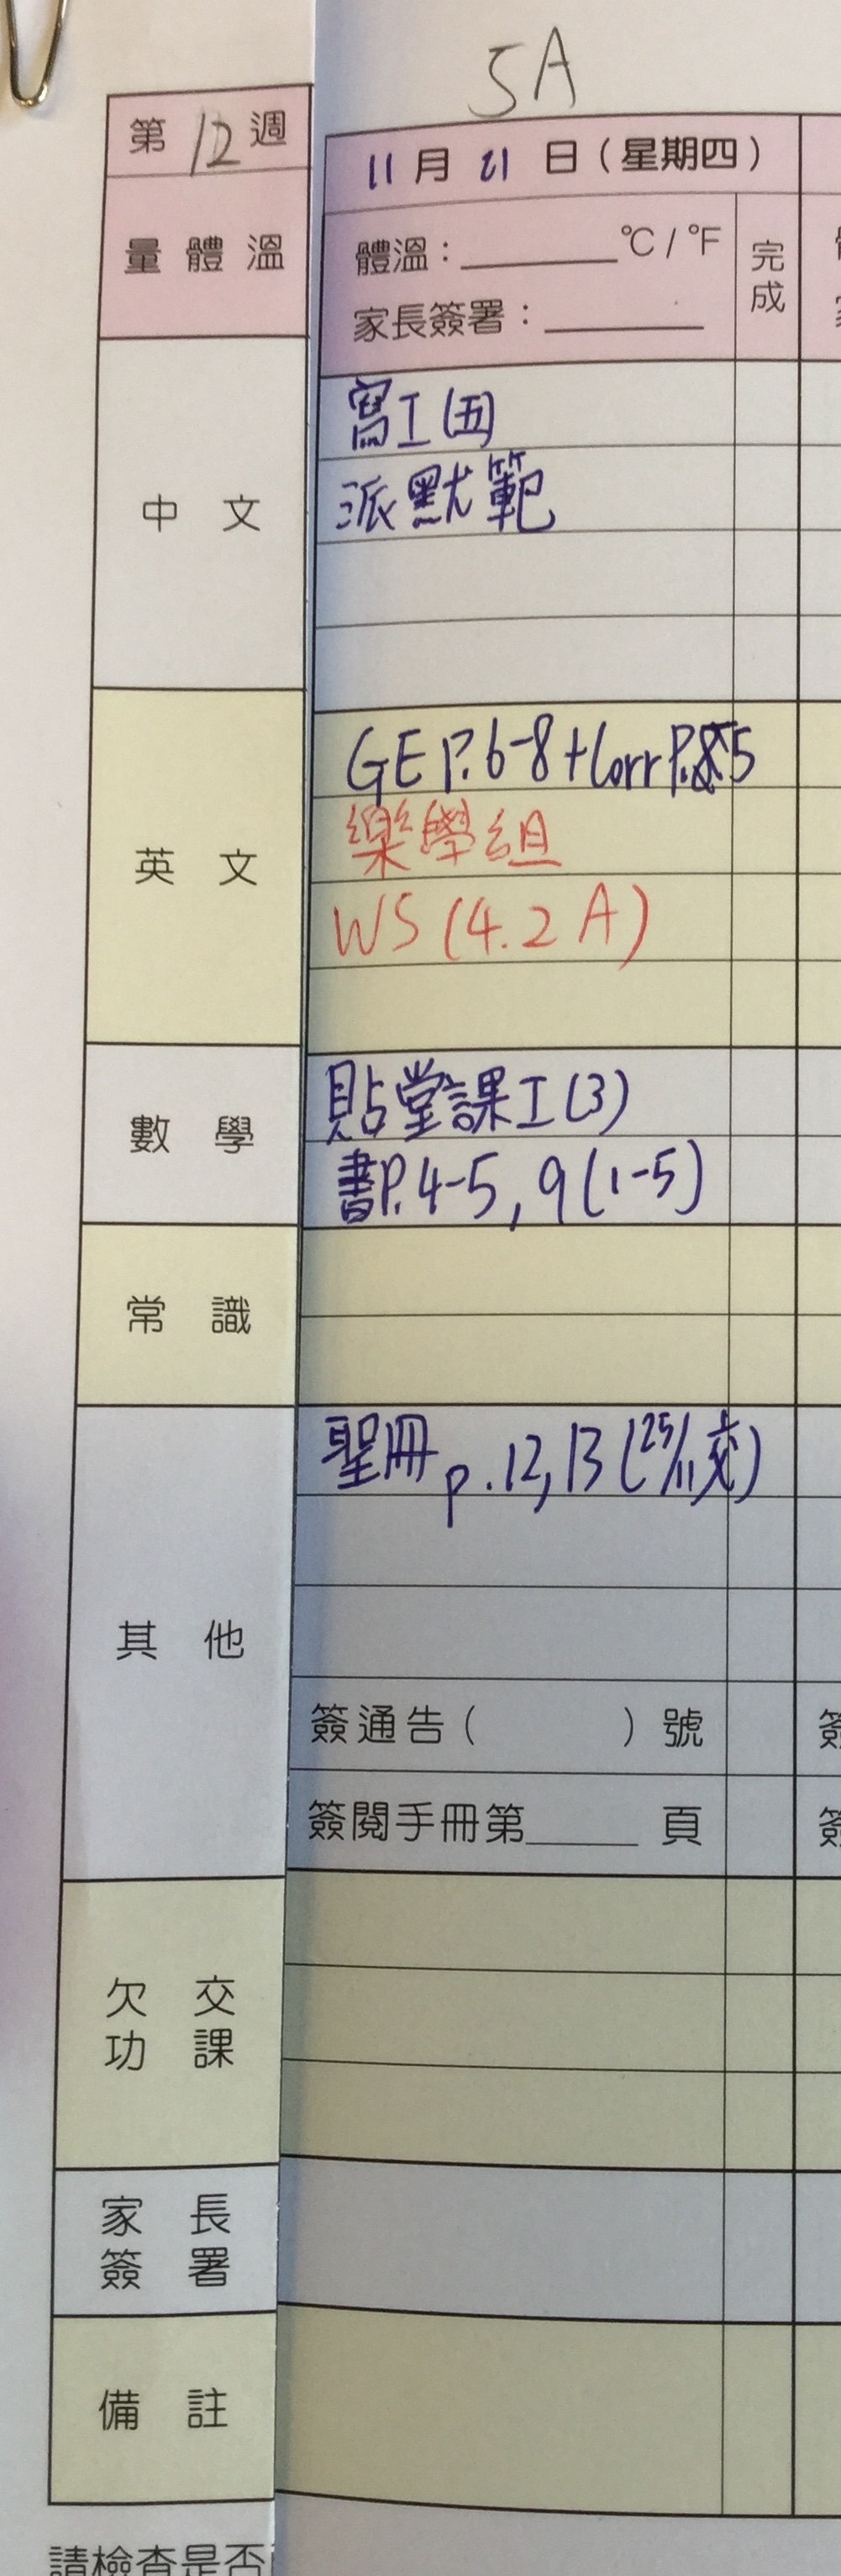 5A
第12週
11月21日(星期四)
量體溫
體溫：______°C/°F
完成
家長簽署：______
中文
寫工(五)
派默範
英文
GE P.6-8+Corr P.5
樂學組
WS(4.2A)
數學
貼堂課工(3)
書P.4-5, 9(1-5)
常識
其他
聖冊p.12,13(25/11交)
簽通告(　　　)號
簽
簽閱手冊第____頁
簽
欠交功課
家長簽署
備註
請檢查是否